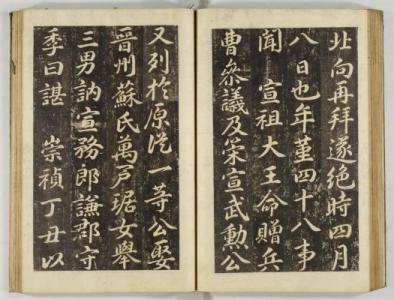 北向再拜遂絶時四月
八日也年董四十八事
聞 宣祖大王命贈兵
曹叅議及策宣武勲公
又列於原從一等公娶
晉州蘇氏萬戶琚女舉
三男訥宣務郎謙郡守
季曰諶 崇禎丁丑以